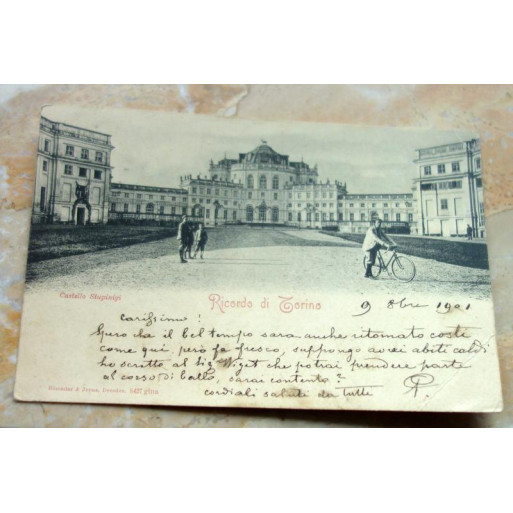 Castello Stupinigi
Ricordo di Torino
9 8bre 1901
Carissimo!
Spero che il bel tempo sarà anche ritornato costì
come qui, però fa fresco, suppongo avrei abiti caldi
ho scritto al sig. che potrai prendere parte
al corso di ballo, sarai contento?
cordiali saluti da tutti